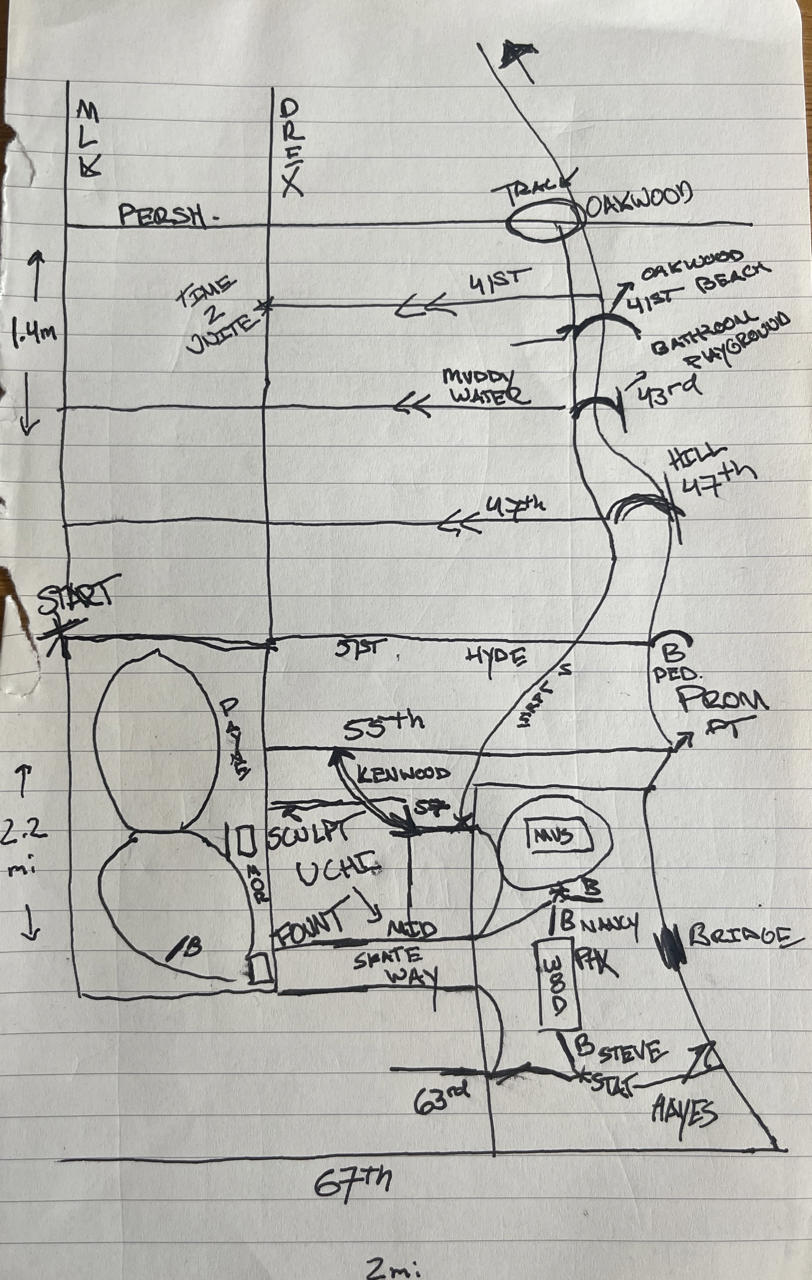 MLK
DREX
TRACK
OAKWOOD
PERSH.
OAKWOOD
41ST BEACH
41ST
TIME
2
UNITE
1.4m
BATHROOM
PLAYGROUND
MUDDY
WATER
43rd
HILL
47th
47th
START
51ST
HYDE
B
PED.
PROM
PT
55th
KENWOOD
2.2
mi
57
SCULPT
UCHI
MUS
B
FOUNT
MID
B NANCY
BRIDGE
SKATE
WAY
PRK
B
B STEVE
STAT
63rd
HAYES
67th
2mi